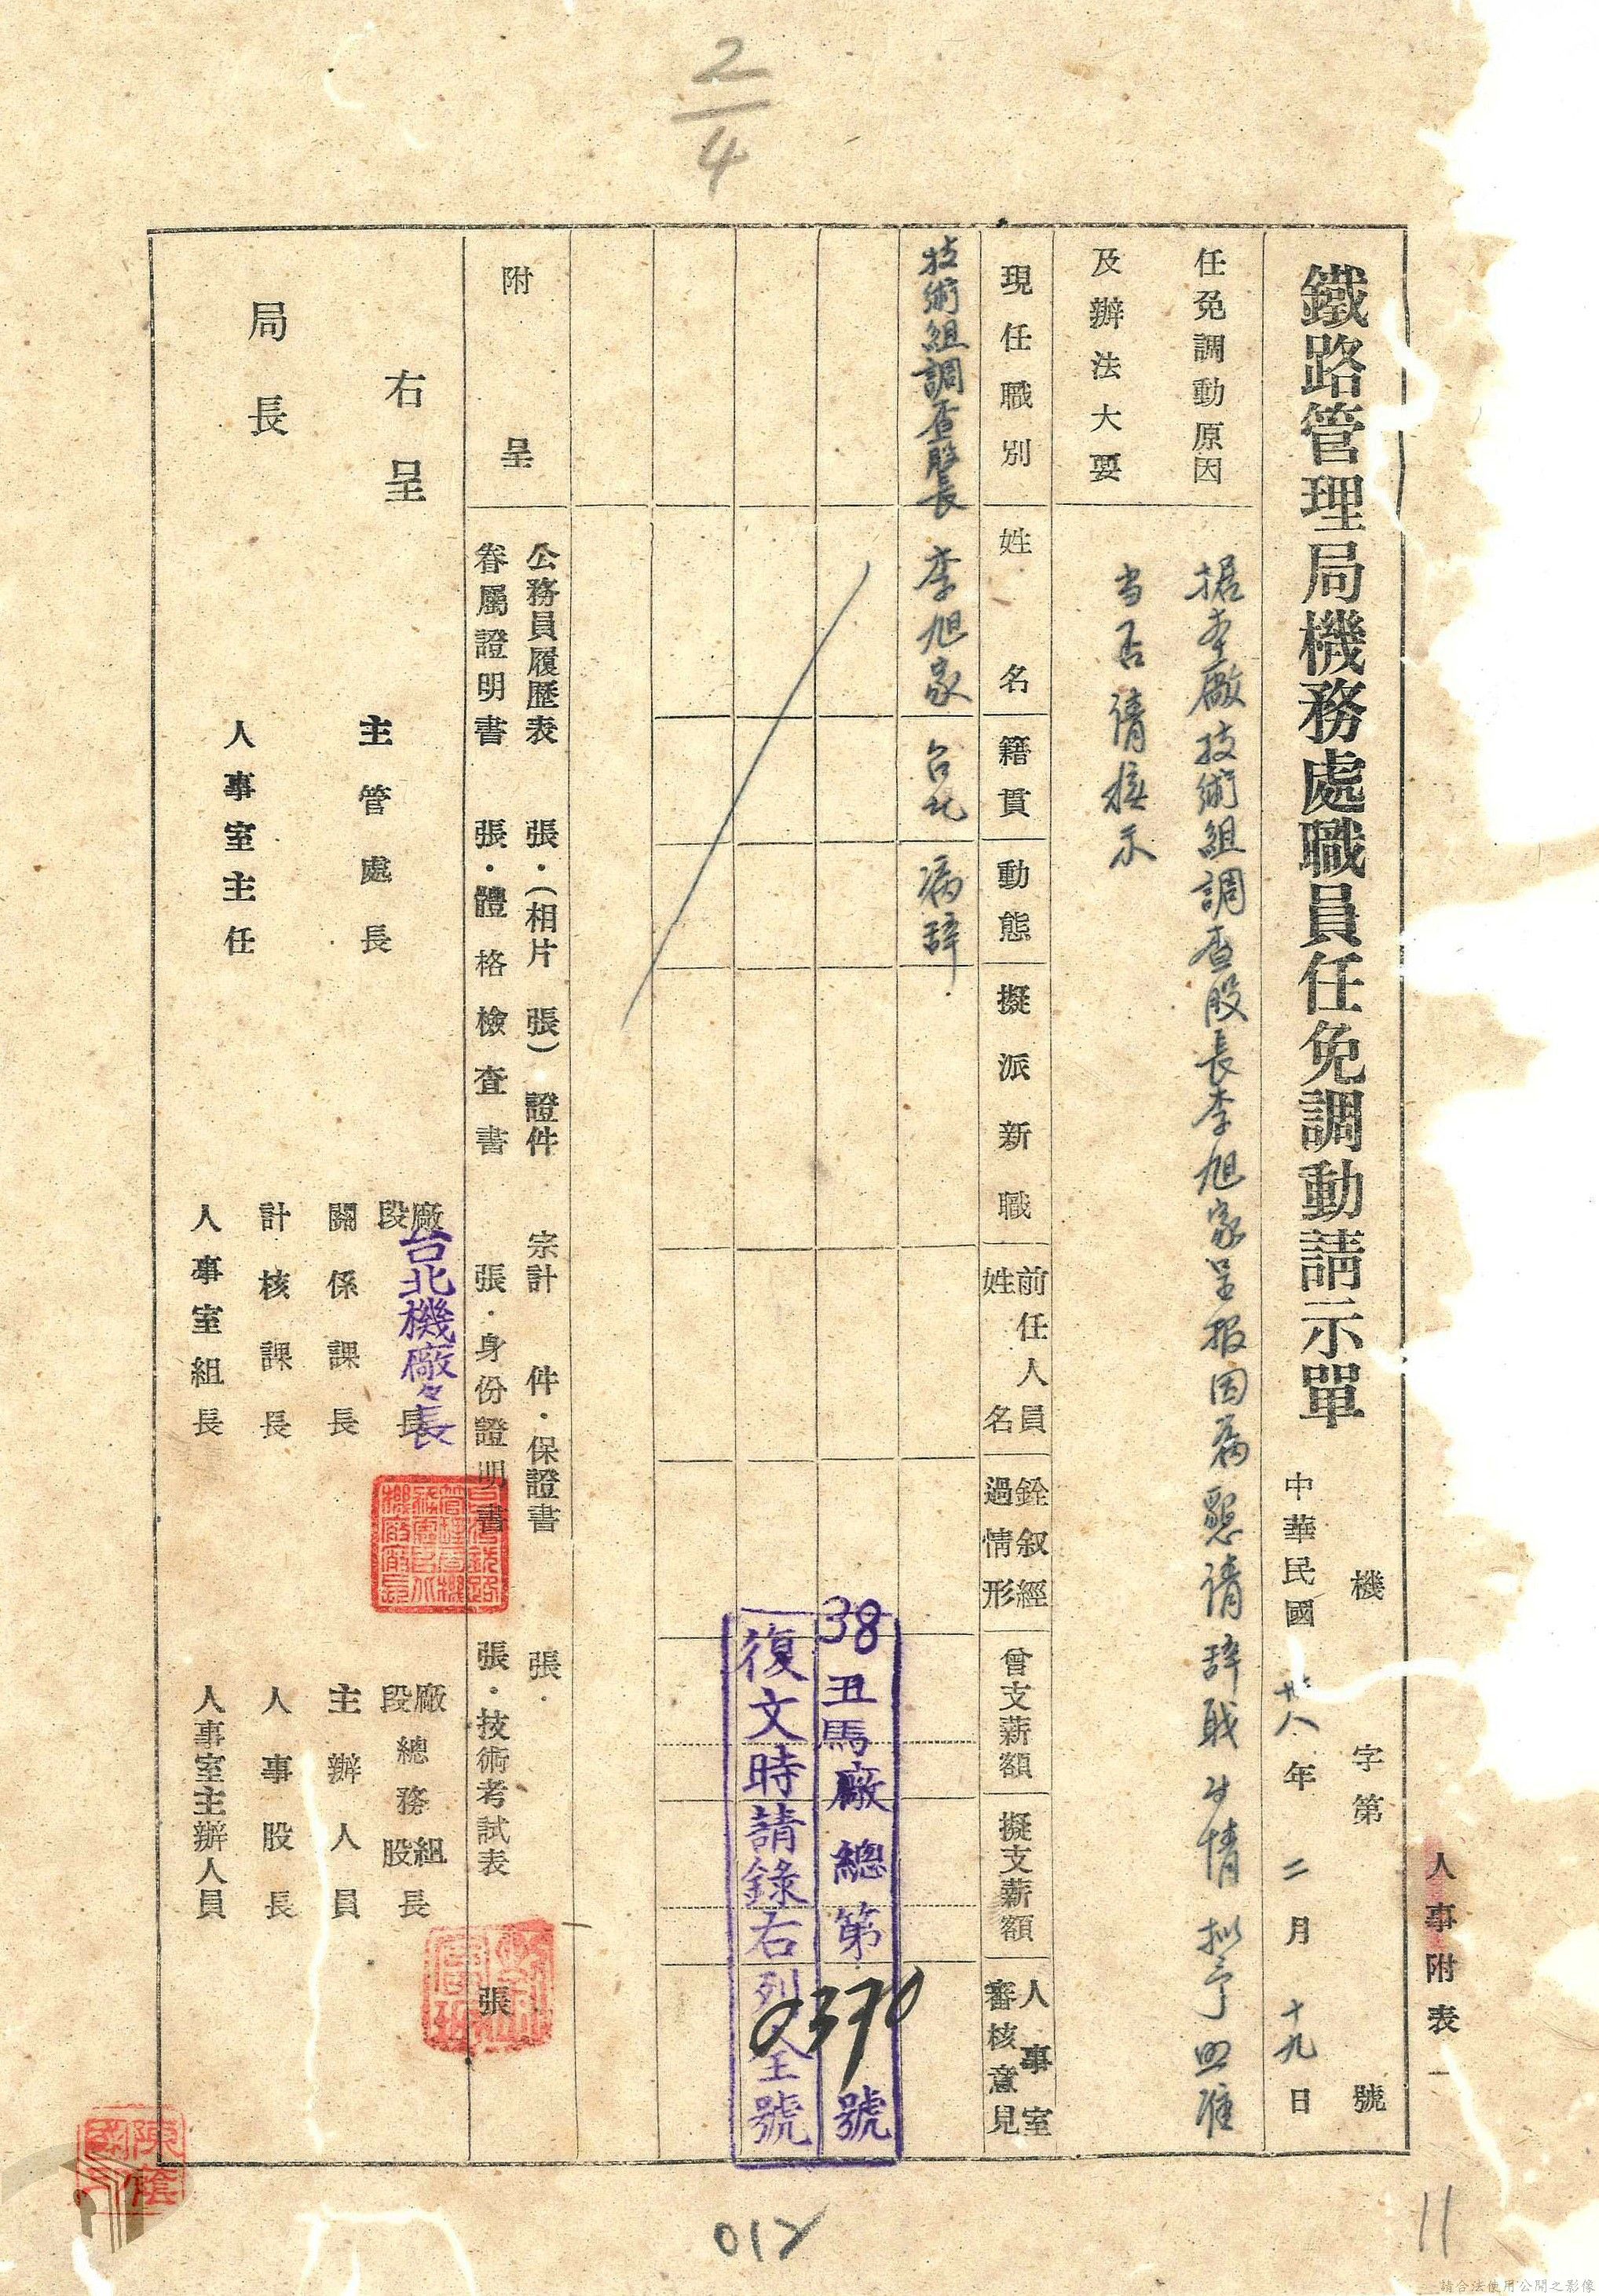 2/4
人事附表一
鐵路管理局機務處職員任免調動請示單
機 字第 號
中華民國卅八年二月十九日
任免調動原因
及辦法大要
据本廠技術組調查股長李旭家呈报因病懇请辞职乡情拟予照准
当否请核示
現任職別
姓名
籍貫
動態
擬派新職
前任人員姓名
銓叙經過情形
曾支薪額
擬支薪額
人事室審核意見
技術組調查股長
李旭家
台北
病辞
38丑馬廠總第0370號
復文時請錄右列全號
附呈
公務員履歷表 張·(相片 張)證件 宗計 件·保證書 張·
眷屬證明書 張·體格檢查書 張·身份證明書 張·技術考試表 張
右呈
局長
主管處長
人事室主任
廠段長
台北機廠々長
關係課長
計核課長
人事室組長
廠段總務組股長
主辦人員
人事股長
人事室主辦人員
012
11
請合法使用公開之影像